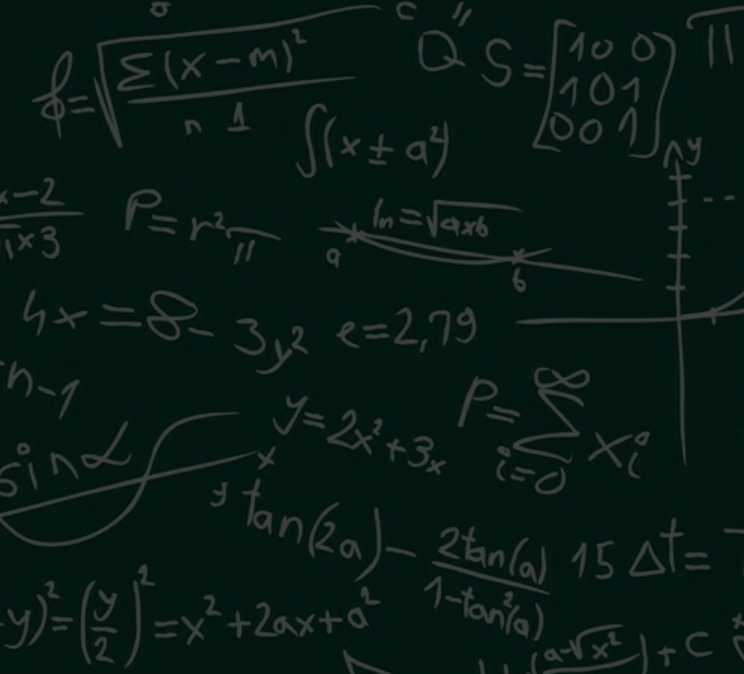 σ
C "
∮=√Σ(x-m)²/n 1
Q S=[1 0 0
1 0 1
0 0 1]
∫(x±a²)
y
x-2/1×3
P=r²π
ln=√axb
a b
4x=8-3y² e=2,79
n-1
y=2x²+3x
P=∑ i=0 ∞ xi
sinα
x
y
tan(2a)-2tan(a)/1-tan²(a)
15 Δt=
y)²=(y/2)²=x²+2ax+a²
(a-√x²)+C